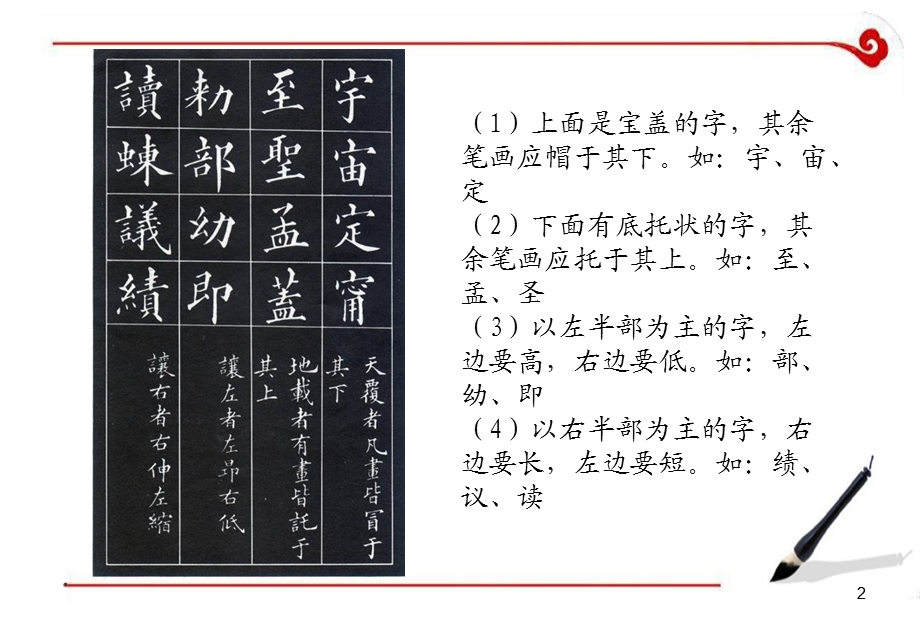 宇宙定甯
天覆者凡畫皆冒于
其下
至聖孟蓋
地載者有畫皆託于
其上
勑部幼即
讓左者左昂右低
讀蝀議績
讓右者右伸左縮
（1）上面是宝盖的字，其余
笔画应帽于其下。如：宇、宙、
定
（2）下面有底托状的字，其
余笔画应托于其上。如：至、
孟、圣
（3）以左半部为主的字，左
边要高，右边要低。如：部、
幼、即
（4）以右半部为主的字，右
边要长，左边要短。如：绩、
议、读
2